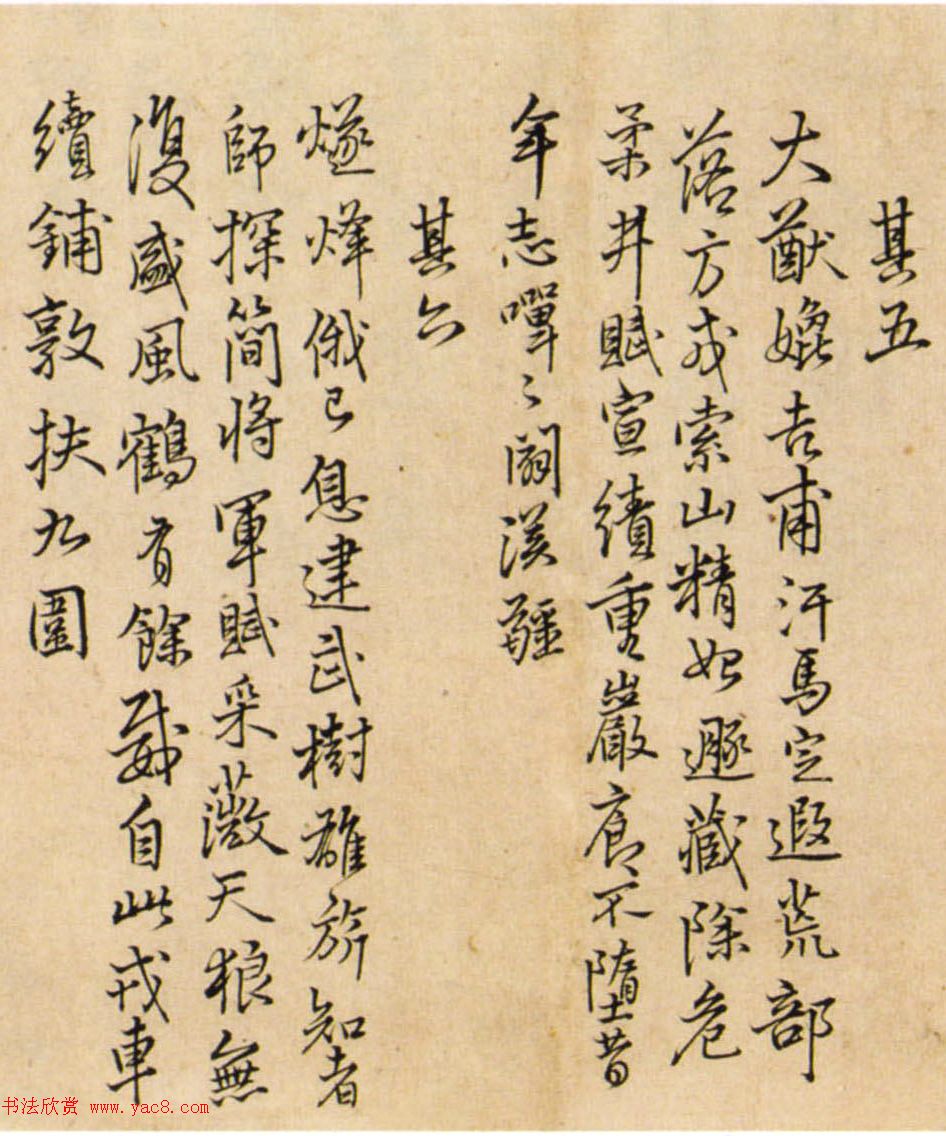 其五
大猷媲吉甫汗馬定遐荒部
落方戎索山精始遯藏除危
柔井賦宣績重巖廊不墮昔
年志嘽〻闢漢疆
其六
燧烽俄已息建武樹雄旂知者
師探簡將軍賦采薇天狼無
復盛風鶴有餘威自此戎車
續鋪敦扶九圍
书法欣赏 www.yac8.com